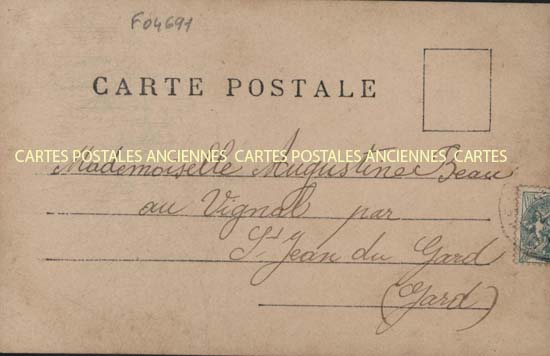 F04691
CARTE POSTALE
CARTES POSTALES ANCIENNES CARTES POSTALES ANCIENNES CARTES
Mademoiselle Augustine Beau
au Vignal par
St Jean du Gard
(Gard)